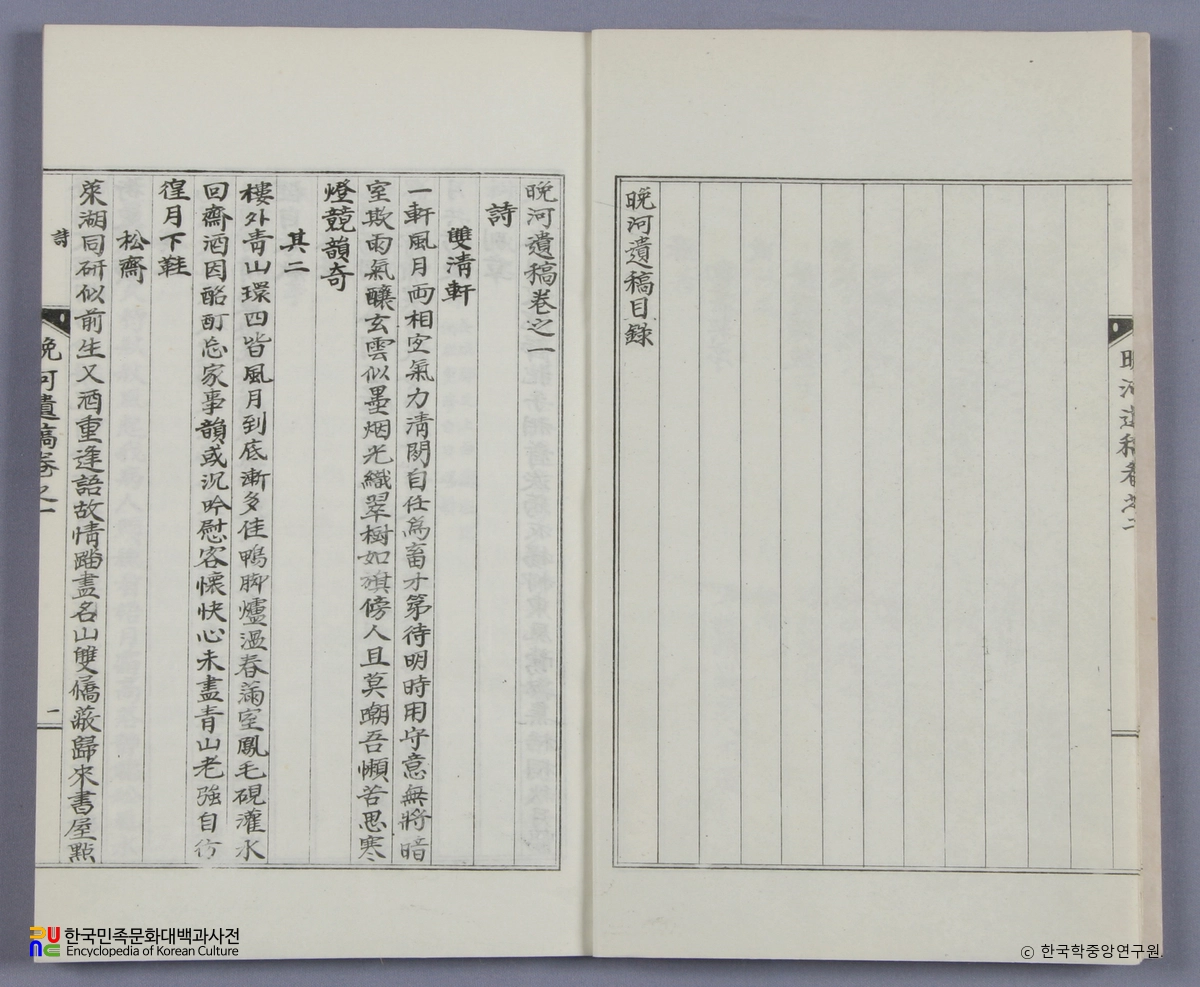 晩河遺稿卷之二
晩河遺稿目録
晩河遺稿卷之一
詩
雙清軒
一軒風月両相宜氣力清閒自任為畜才第待明時用守意無將暗
室欺雨氣釀玄雲似墨烟光織翠樹如旗傍人且莫嘲吾懶苦思寒
燈競韻奇
其二
樓外青山環四皆風月到底漸多佳鴨脚爐温春滿室鳳毛硯灌水
回齋酒因酩酊忘家事韻或沉吟慰客懷快心未盡青山老強自彷
徨月下鞋
松齋
萊湖同研似前生又酒重逢語故情踏盡名山雙屩蔽歸來書屋點
詩
晩河遺稿卷之一
一
한국민족문화대백과사전
Encyclopedia of Korean Culture
© 한국학중앙연구원